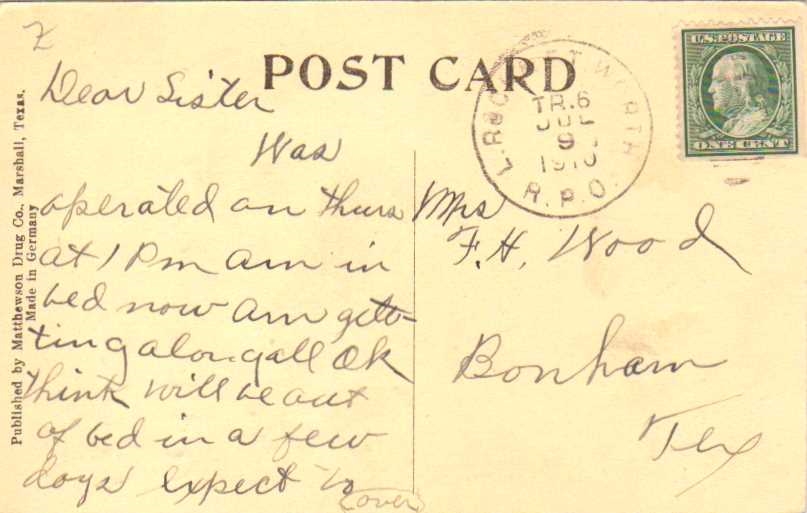 Z
POST CARD
L. ROCK & FT WORTH
TR. 6
JUL
9
1910
R. P. O.
U.S. POSTAGE
ONE CENT
Published by Matthewson Drug Co., Marshall, Texas.
Made in Germany
Dear Sister
Was
operated on thurs
at 1 Pm am in
bed now am gett-
ting along all Ok
think will be out
of bed in a few
days expect to
(over)
Mrs
F. H. Wood
Bonham
Tex